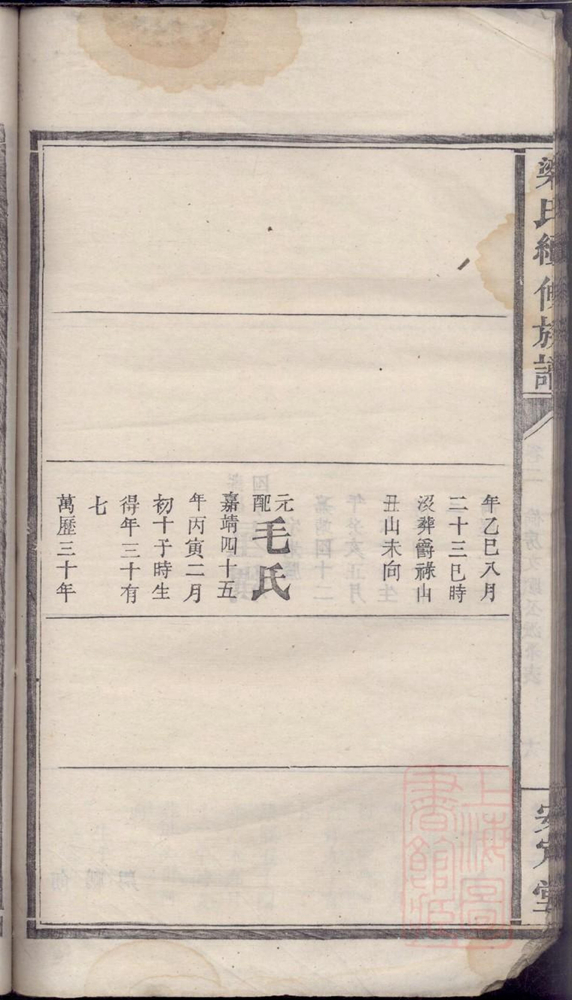 梁氏續修族譜
安定堂
年乙巳八月
二十三巳時
沒葬爵祿山
丑山未向
元配毛氏
嘉靖四十五
年丙寅二月
初十子時生
得年三十有
七
萬歷三十年
上海圖書館藏